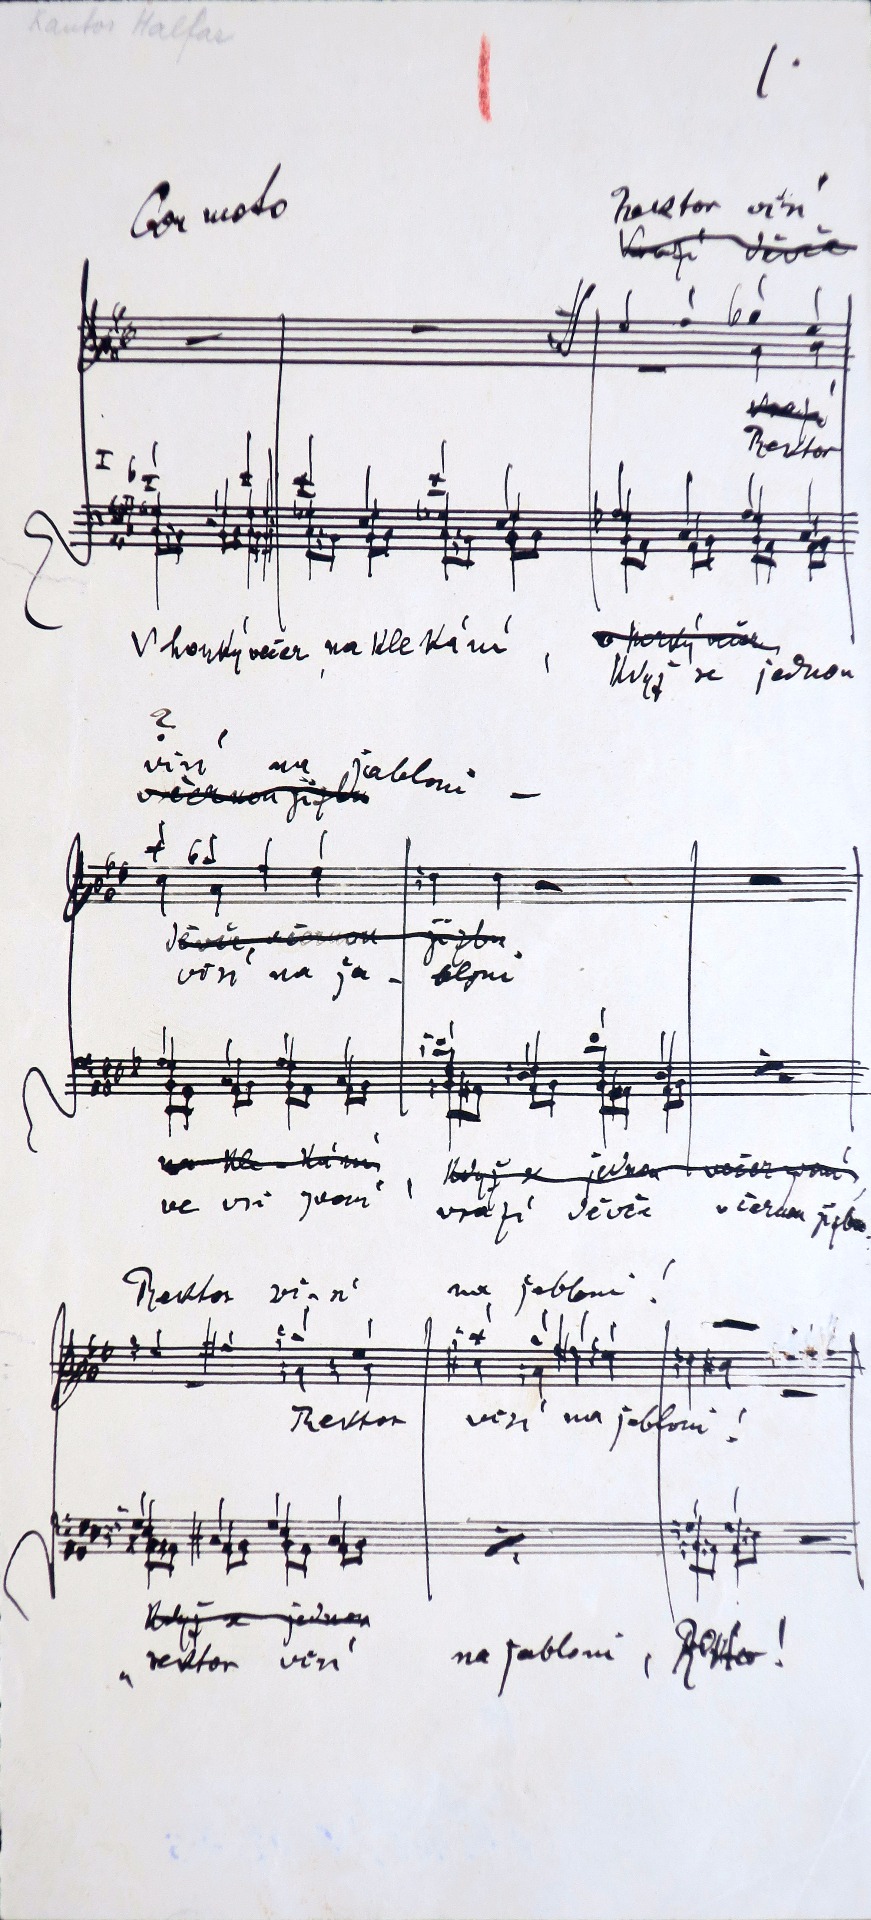 Kantor Halfar
1.
Con moto
Rektor visí
Vrazí děvče
vrazí
Rektor
I
V horký večer na klekání,
v horký večer
Když se jednou
?
visí na jabloni –
v černou jizbu
děvče, v černou jizbu
visí na ja - bloni
na kle - kání, Když se jednou večer zvoní,
ve vsi zvoní, vrazí děvče v černou jizbu.
Rektor visí na jabloni!
Rektor visí na jabloni!
Když se jednou
„rektor visí na jabloni, Rektor!